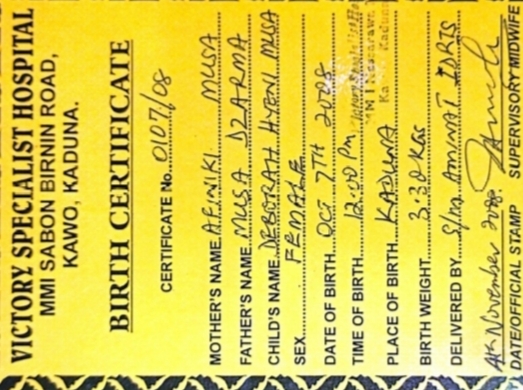 VICTORY SPECIALIST HOSPITAL
MMI SABON BIRNIN ROAD,
KAWO, KADUNA.
BIRTH CERTIFICATE
CERTIFICATE No. 0107/08
MOTHER'S NAME AFINIKI MUSA
FATHER'S NAME MUSA DZARMA
CHILD'S NAME DEBORAH HYENI MUSA
SEX FEMALE
DATE OF BIRTH OCT 7TH 2008
TIME OF BIRTH 12:00 Pm
PLACE OF BIRTH KADUNA
BIRTH WEIGHT 3:30 KGS
DELIVERED BY S/no. AMINAT IDRIS
4th November 2008
DATE/OFFICIAL STAMP SUPERVISORY MIDWIFE